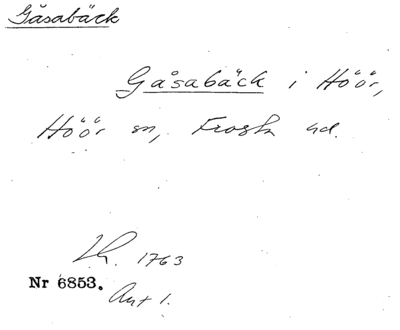 Gåsabäck
Gåsabäck i Höör,
Höör sn, Frosta hd.
1763
Nr 6853.
Ant 1.